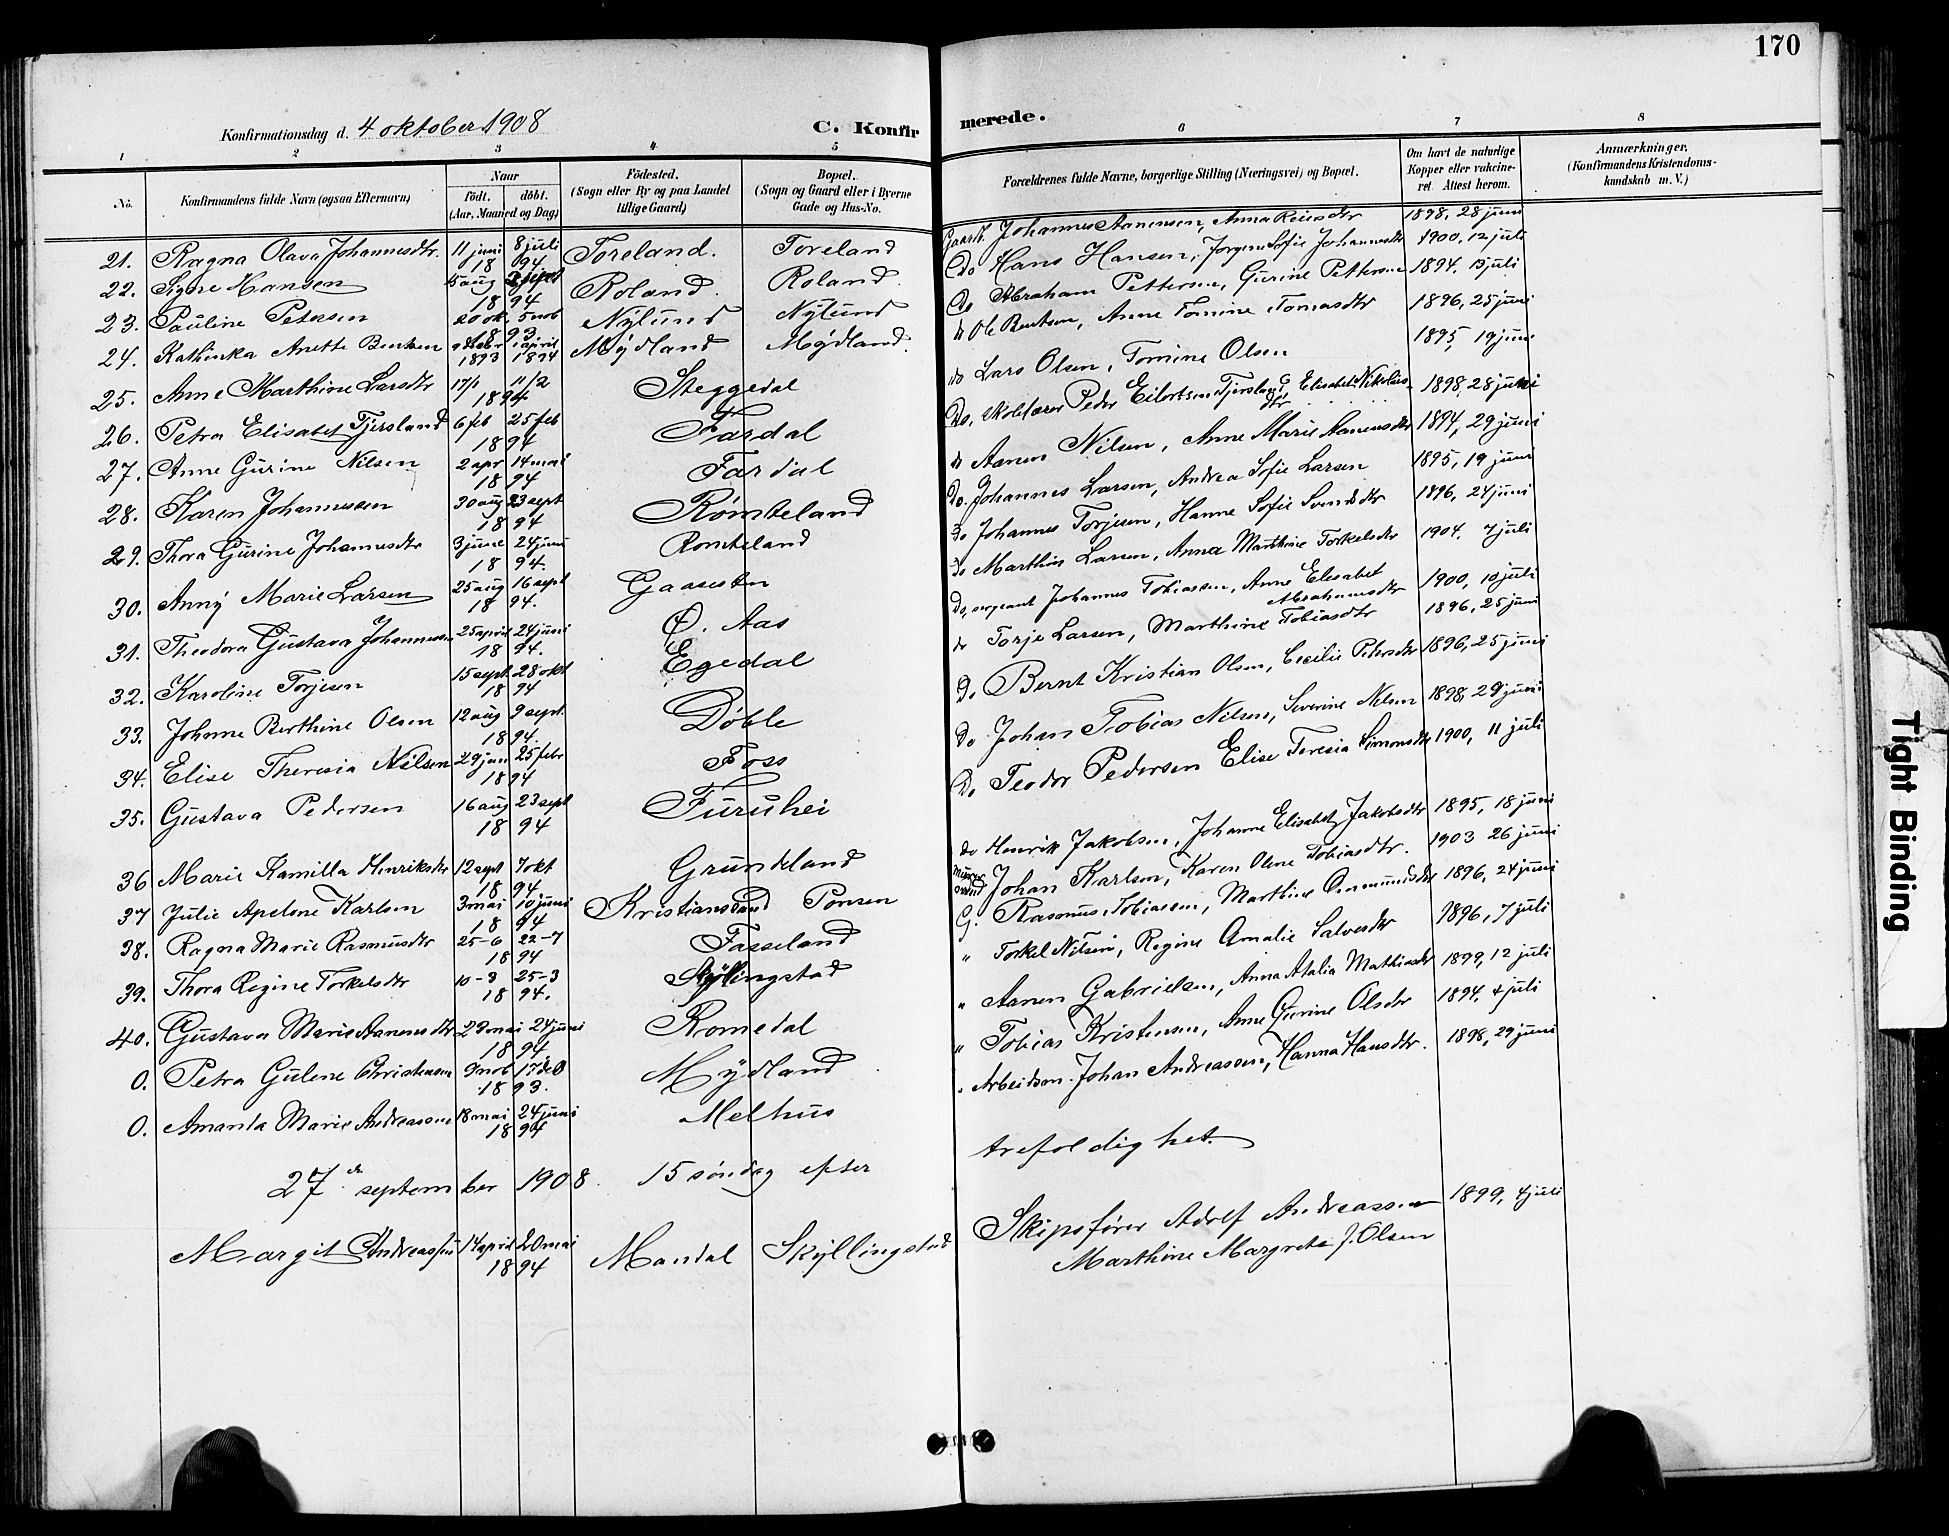 170
Konfirmationsdag d. 4 oktober 1908 C. Konfirmerede.
1 2 3 4 5 6 7 8
No. Konfirmandens fulde Navn (ogsaa Efternavn) Naar født. døbt. (Aar, Maaned og Dag) Fødested. (Sogn eller By og paa Landet tillige Gaard) Bopæl. (Sogn og Gaard eller i Byerne Gade og Hus-No. Forældrenes fulde Navne, borgerlige Stilling (Næringsvei) og Bopæl. Om havt de naturlige Kopper eller vakcineret. Attest herom. Anmærkninger. (Konfirmandens Kristendomskundskab m. V.)
21. Ragna Olava Johannesdtr. 11 juni 8 juli 1894 Toreland. Toreland Gaardb. Johannes Aanensen, Anna Reiersdtr 1898, 28 juni
22. Signe Hansen 5 aug 2 sept 1894 Roland Roland Do Hans Hansen, Jørgine Sofie Johannesdtr 1900, 12 juli
23. Pauline Petersen 20 ok. 5 nob 1893 Nylund Nylund Do Abraham Pettersen, Gurine Pettersen 1894, 13 juli
24. Kathinka Anette Bentsen 1893 april 1894 Mydland Mydland. do Ole Bentsen, Anne Tomine Tomasdtr 1896, 25 juni
25. Anne Marthine Larsdtr 17/1 11/2 1894 Steggedal do Lars Olsen, Tomine Olsen 1895, 19 juni
26. Petra Elisabet Tjersland 6 feb 25 feb 1894 Fardal Do, skolelærer Peder Eilertsen Tjersland, Elisabet Nikolaisdtr 1898, 28 juni
27. Anne Gurine Nilsen 2 apr 14 mai 1894 Fardal do Aanen Nilsen, Anne Marie Aanensdtr 1894, 29 juni
28. Karen Johannesen 30 aug 23 sept 1894 Römteland Do. Johannes Larsen, Andrea Sofie Larsen 1895, 19 juni
29. Thora Gurine Johannesdtr 3 june 24 juni 1894. Romteland Do Johannes Torjesen, Hanne Sofie Svendsdtr 1896, 24 juni
30. Anny Marie Larsen 25 aug 16 sept 1894. Gaasesten do Marthin Larsen, Anna Marthine Torkelsdtr 1904, 7 juli
31. Theodora Gustava Johannesen 25 april 24 juni 1894. Ø. Aas Do, sergeant Johannes Tobiassen, Anne Elisabet Abrahamsdtr 1900, 10 juli
32. Karoline Torjesen 15 sept 28 okt 1894 Egedal do Torje Larsen, Marthine Tobiasdtr 1896, 25 juni
33. Johanne Berthine Olsen 12 aug 9 sept. 1894. Døble Do Bernt Kristian Olsen, Cecilie Petersdtr 1896, 25 juni
34. Elise Theresia Nilsen 29 jan 25 febr 1894 Foss Do Johan Tobias Nilsen, Severine Nilsen 1898, 29 juni
35. Gustava Pedersen 16 aug 23 sept 1894 Furuhei Do Teodor Pedersen Elise Teresia Simonsdtr 1900, 11 juli
36 Marie Kamilla Henriksdtr 12 sept 7 okt 1894 Grundeland do Henrik Jakobsen, Johanne Elisabet Jakobsdtr 1895, 18 juni
37 Julie Apelone Karlsen 3 mai 10 juni 1894 Kristianssand Ponsen Johan Karlsen, Karen Olene Tobiasdtr. 1903 26 juni
38. Ragna Marie Rasmusdtr 25-6 22-7 1894 Fasseland G. Rasmus Tobiassen, Marthine Osmundsdtr 1896, 24 juni
39. Thora Regine Torkelsdtr 10-3 25-3 1894. Skjllingstad " Torkel Nilsen, Regine Amalie Salvesdtr 1896, 7 juli
40. Gustava Marie Aanensdtr 29 mai 24 juni 1894 Romedal " Aanen Gabrielsen, Anna Atalia Mathiasdtr 1899, 12 juli
0. Petra Gulene Christensen 9 nob 17 de 1893. Mydland " Tobias Kristensen, Anne Gurine Olsdtr 1894, 4 juli
0. Amanda Marie Andreassen 18 mai 24 juni 1894 Melhus Arbeidsm. Johan Andreassen, Hanna Hansdtr. 1898, 29 juni
27 de september 1908. 15 søndag efter trefoldighet.
Margit Andreassen 14 april 20 mai 1894 Mandal Skyllingstad Skipsfører Adolf Andreassen 1899, 4 juli
Marthine Margrete J. Olsen
Tight Binding